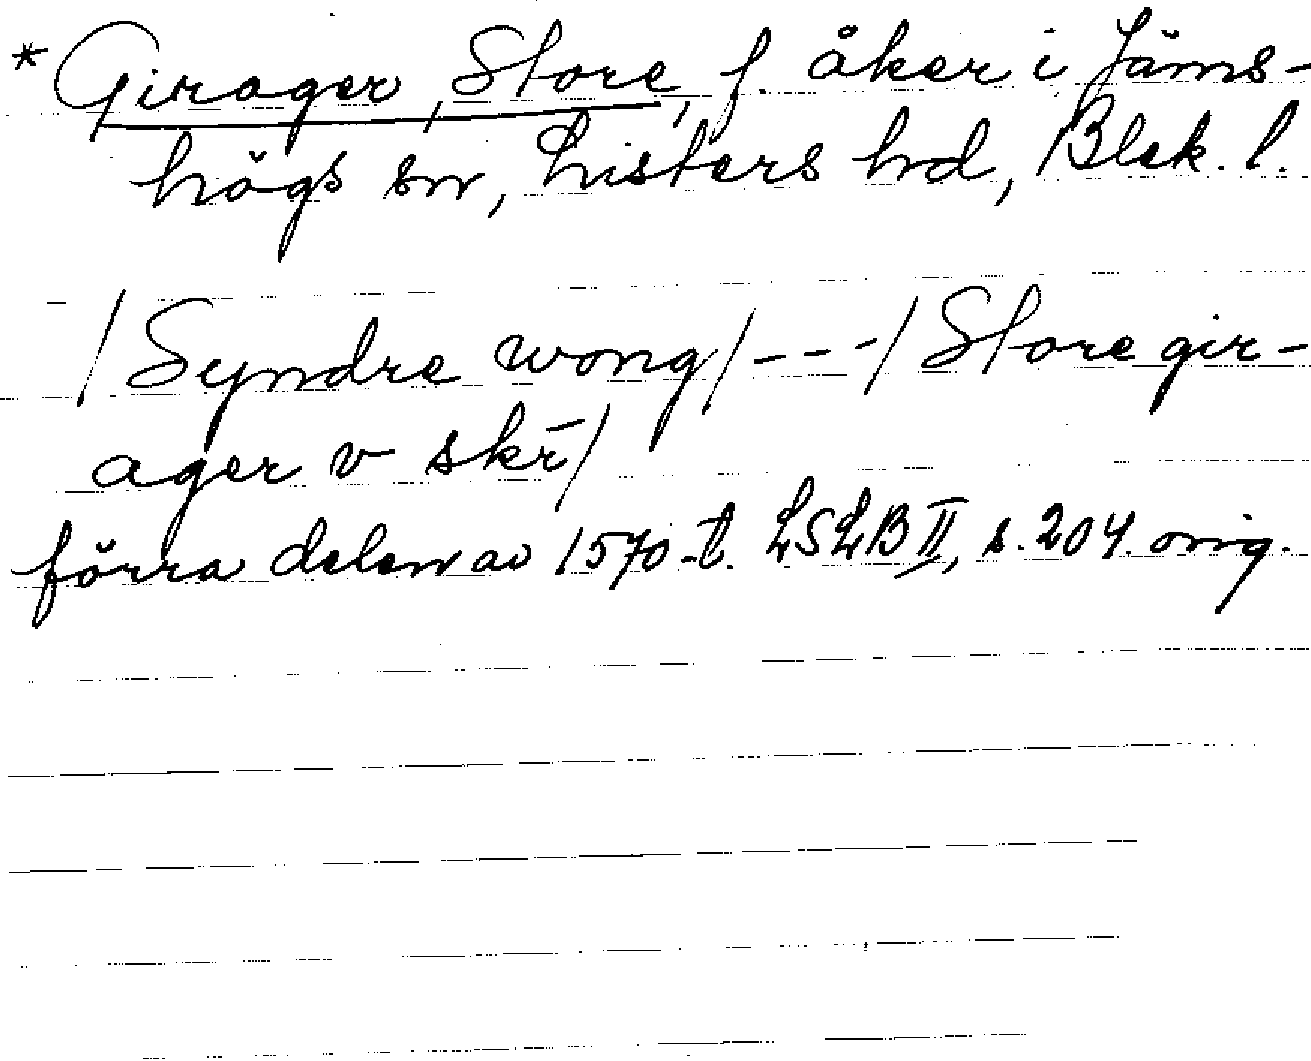 * Girager, Store, f. åker i Jäms-
högs sn, Listers hd, Blek. l.
/Syndre wong/---/Store gir-
ager v skr̄/
förra delen av 1570-t. LSLB II, s. 204. orig.